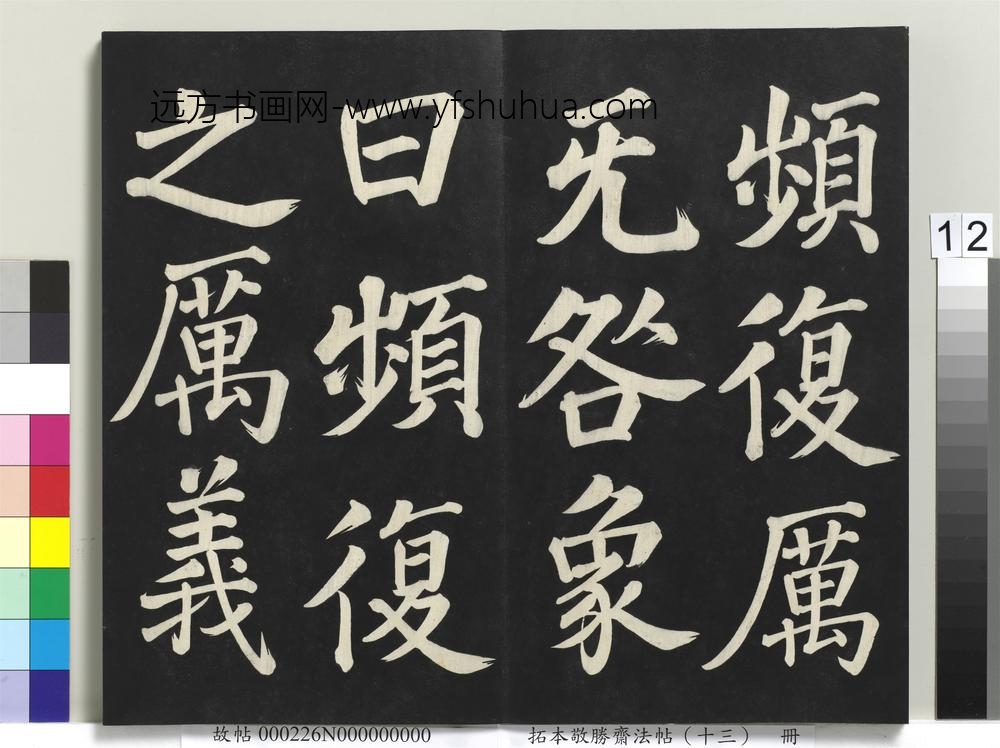 頻復厲
无咎象
曰頻復
之厲義
远方书画网-www.yfshuhua.com
12
故帖 000226N000000000
拓本敬勝齋法帖（十三） 冊